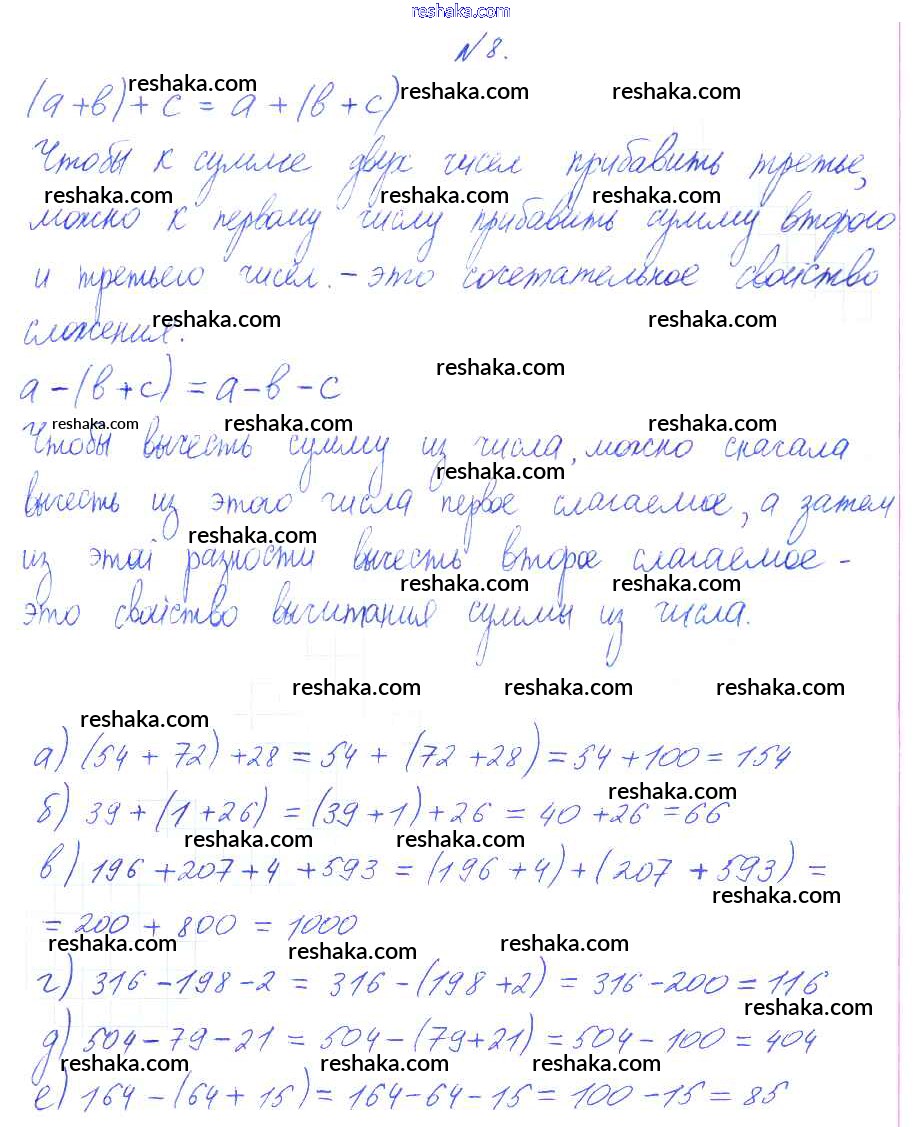 reshaka.com
№ 8.
reshaka.com
reshaka.com reshaka.com
(а+в)+с = а+(в+с)
Чтобы к сумме двух чисел прибавить третье,
reshaka.com reshaka.com reshaka.com
можно к первому числу прибавить сумму второго
и третьего чисел. – это сочетательное свойство
reshaka.com reshaka.com
сложения.
reshaka.com
а-(в+с) = а-в-с
reshaka.com reshaka.com reshaka.com
Чтобы вычесть сумму из числа, можно сначала
reshaka.com
вычесть из этого числа первое слагаемое, а затем
reshaka.com
из этой разности вычесть второе слагаемое –
reshaka.com reshaka.com
это свойство вычитания суммы из числа.
reshaka.com reshaka.com reshaka.com
reshaka.com
а) (54 + 72) +28 = 54 + (72 +28) = 54+100 = 154
reshaka.com
б) 39 + (1+26) = (39+1)+26 = 40 +26 = 66
reshaka.com reshaka.com
в) 196 +207+4 +593 = (196 +4)+(207 +593) =
reshaka.com
= 200 + 800 = 1000
reshaka.com reshaka.com reshaka.com
г) 316 -198 -2 = 316 -(198 +2) = 316 -200 = 116
reshaka.com
д) 504 - 79 - 21 = 504 -(79+21) = 504 - 100 = 404
reshaka.com reshaka.com reshaka.com
е) 164 -(64+ 15) = 164-64 -15 = 100 -15 = 85